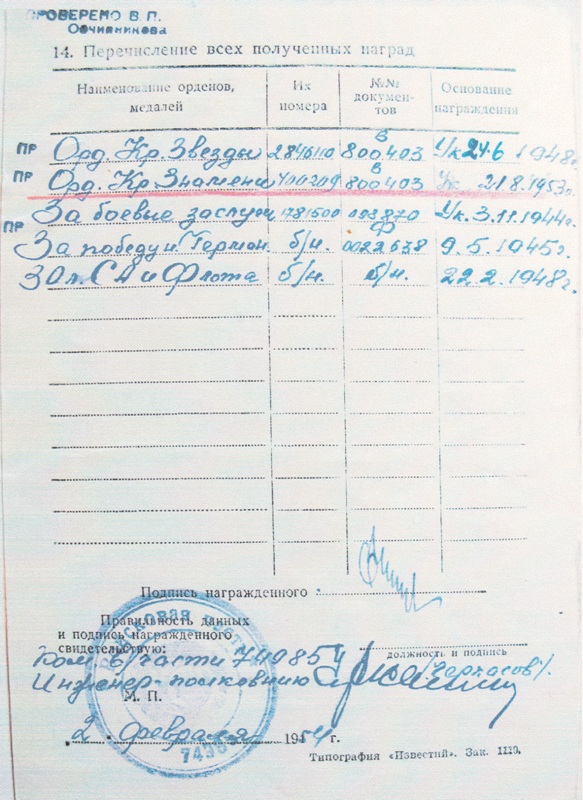 ПРОВЕРЕНО В П.
Овчинникова
14. Перечисление всех полученных наград
Наименование орденов, медалей Их номера №№ документов Основание награждения
ПР Орд. Кр. Звезды 2846110 В 800403 Ук 24.6 1948г.
ПР Орд. Кр. Знамени В 800403 Ук. 21.8.1953г.
За боевые заслуги 1781500 093870 Ук. 3.11.1944г.
ПР За победу н. Герман. б/н. Ф 0022638 9.5.1945г.
30 л. СА и Флота б/н. б/н. 22.2.1948г.
Подпись награжденного
Правильность данных
и подпись награжденного
свидетельствую:
должность и подпись
Ком. в/части 74985
Инженер-полковник /Черкасов/.
М. П.
2 февраля 1954г.
Типография «Известий». Зак. 1129.